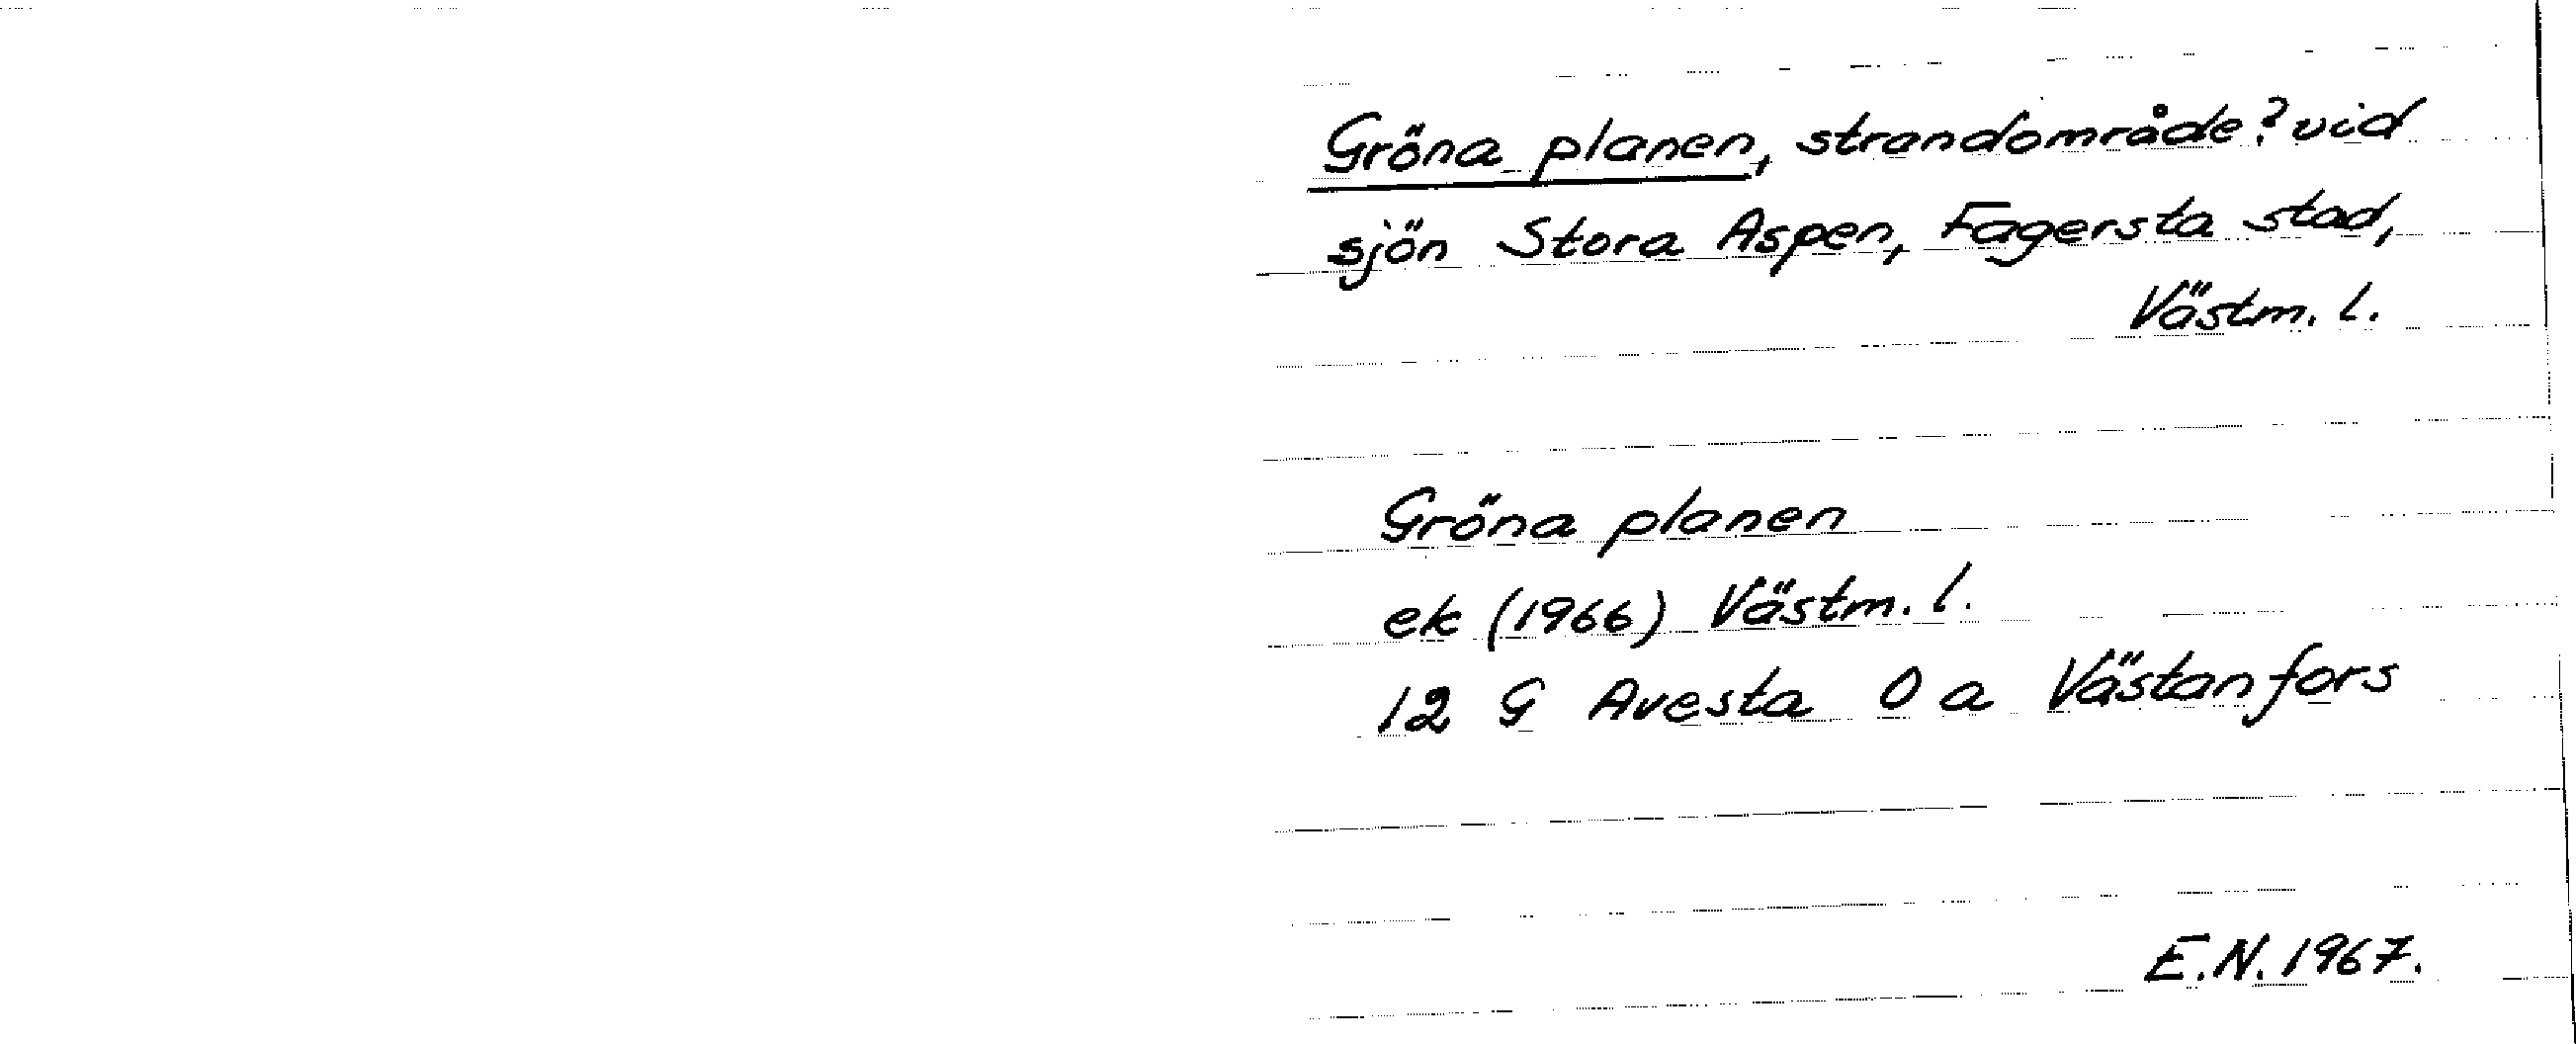 Gröna planen, strandområde? vid
sjön Stora Aspen, Fagersta stad,
Västm. l.
Gröna planen
ek (1966) Västm. l.
12 G Avesta 0 a Västanfors
E.N. 1967.